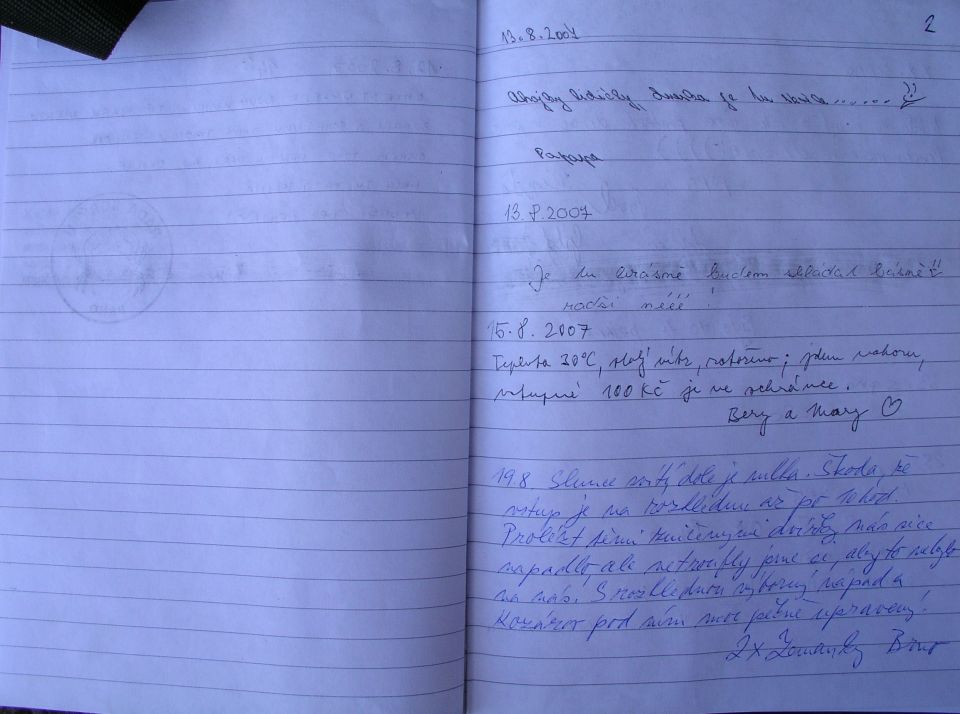 2
13.8.2007
Ahojky lidičky dneska je tu
Papapa
13.8.2007
Je tu krásně budem skládat básně!!
radši nééé!
15.8. 2007
Teplota 30°C, slabý vítr, zataženo; jdem nahoru,
vstupné 100 Kč je ve schránce.
Bery a Mary ♡
19.8. Slunce svítí, dole je mlha. Škoda, že
vstup je na rozhlednu až po 10 hod.
Prolézt těmi zničenými dvířky nás sice
napadlo, ale netroufly jsme si, aby to nebylo
na nás. S rozhlednou výborný nápad a
Kozárov pod ním moc pěkně upravený!
2x Zemanky Brno